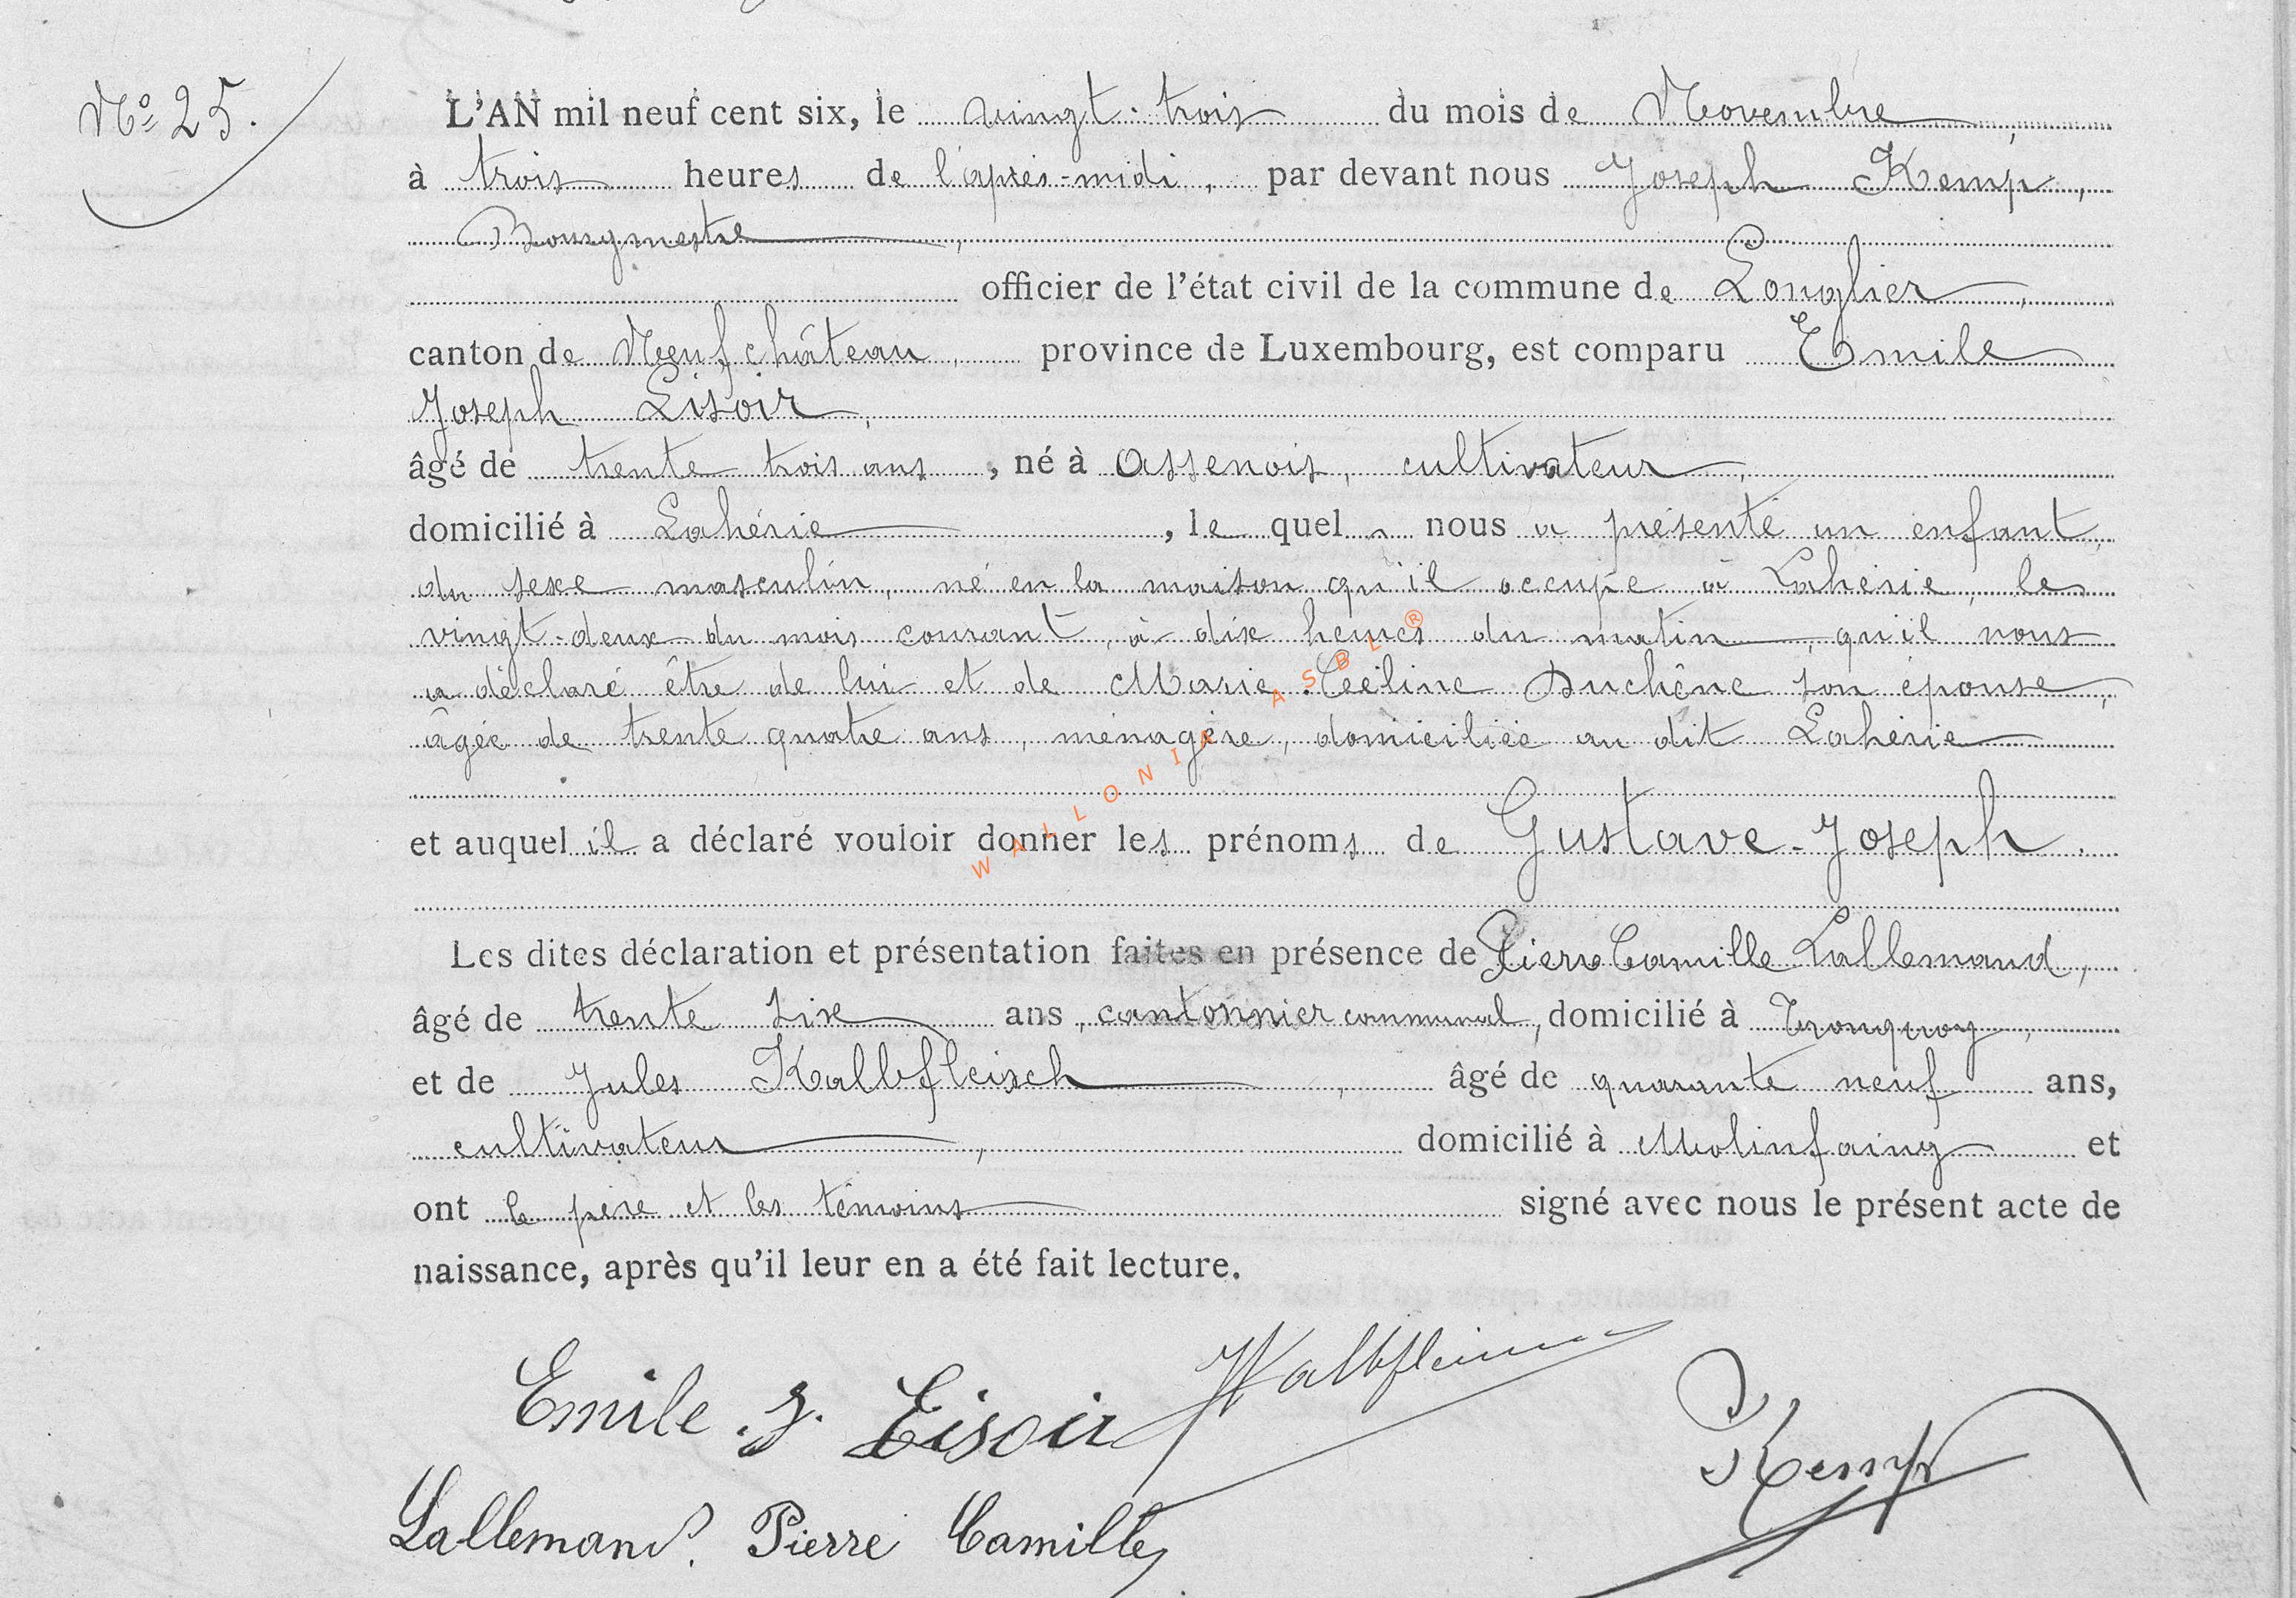 N° 25.
L'AN mil neuf cent six, le vingt-trois du mois de Novembre,
à trois heures de l'après-midi, par devant nous Joseph Kemp,
Bourgmestre,
officier de l'état civil de la commune de Longlier,
canton de Neufchâteau, province de Luxembourg, est comparu Emile
Joseph Lisoir,
âgé de trente trois ans, né à Assenois, cultivateur,
domicilié à Lahérie, le quel nous a présenté un enfant
du sexe masculin, né en la maison qu'il occupe à Lahérie, le
vingt-deux du mois courant, à dix heures du matin, qu'il nous
a déclaré être de lui et de Marie Céeline Duchêne son épouse,
âgée de trente quatre ans, ménagère, domiciliée au dit Lahérie
et auquel il a déclaré vouloir donner les prénoms de Gustave-Joseph.
Les dites déclaration et présentation faites en présence de Pierre Camille Lallemand,
âgé de trente six ans, cantonnier communal, domicilié à Tronquoy,
et de Jules Kalbfleisch, âgé de quarante neuf ans,
cultivateur, domicilié à Molinfaing et
ont le père et les témoins signé avec nous le présent acte de
naissance, après qu'il leur en a été fait lecture.
Emile J. Lisoir
Kemp
Lallemand Pierre Camille
WALLONIA ASBL ®